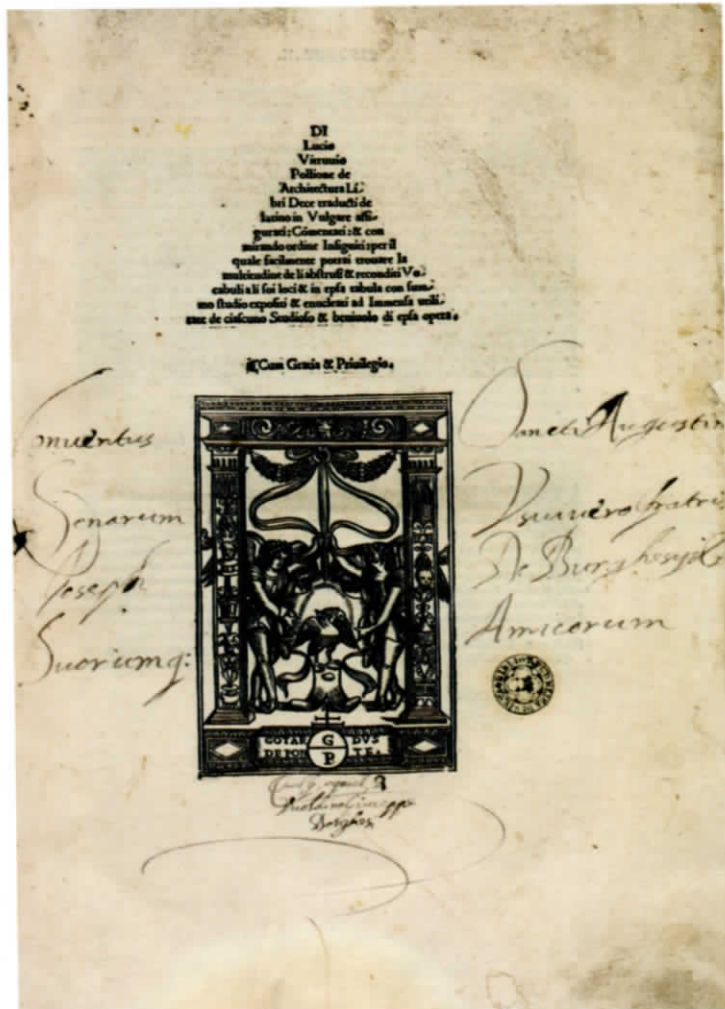 DI
Lucio
Vitruuio
Pollione de
Architectura Li-
bri Dece traducti de
latino in Vulgare affi-
gurati: Cõmentati: & con
mirando ordine Insigniti: per il
quale facilmente potrai trouare la
multitudine de li abstrusi & reconditi Vo-
cabuli a li soi loci & in epsa tabula con sum-
mo studio expositi & enucleati ad Immensa utili-
tate de ciascuno Studioso & beniuolo di epsa opera.
Cum Gratia & Priuilegio.
Conuentus Sancti Augustini
Senarum Vsui uero fratris
Joseph De Burghesijs
Suorumq: Amicorum
GOTAR G DVS
DE PON P TE.